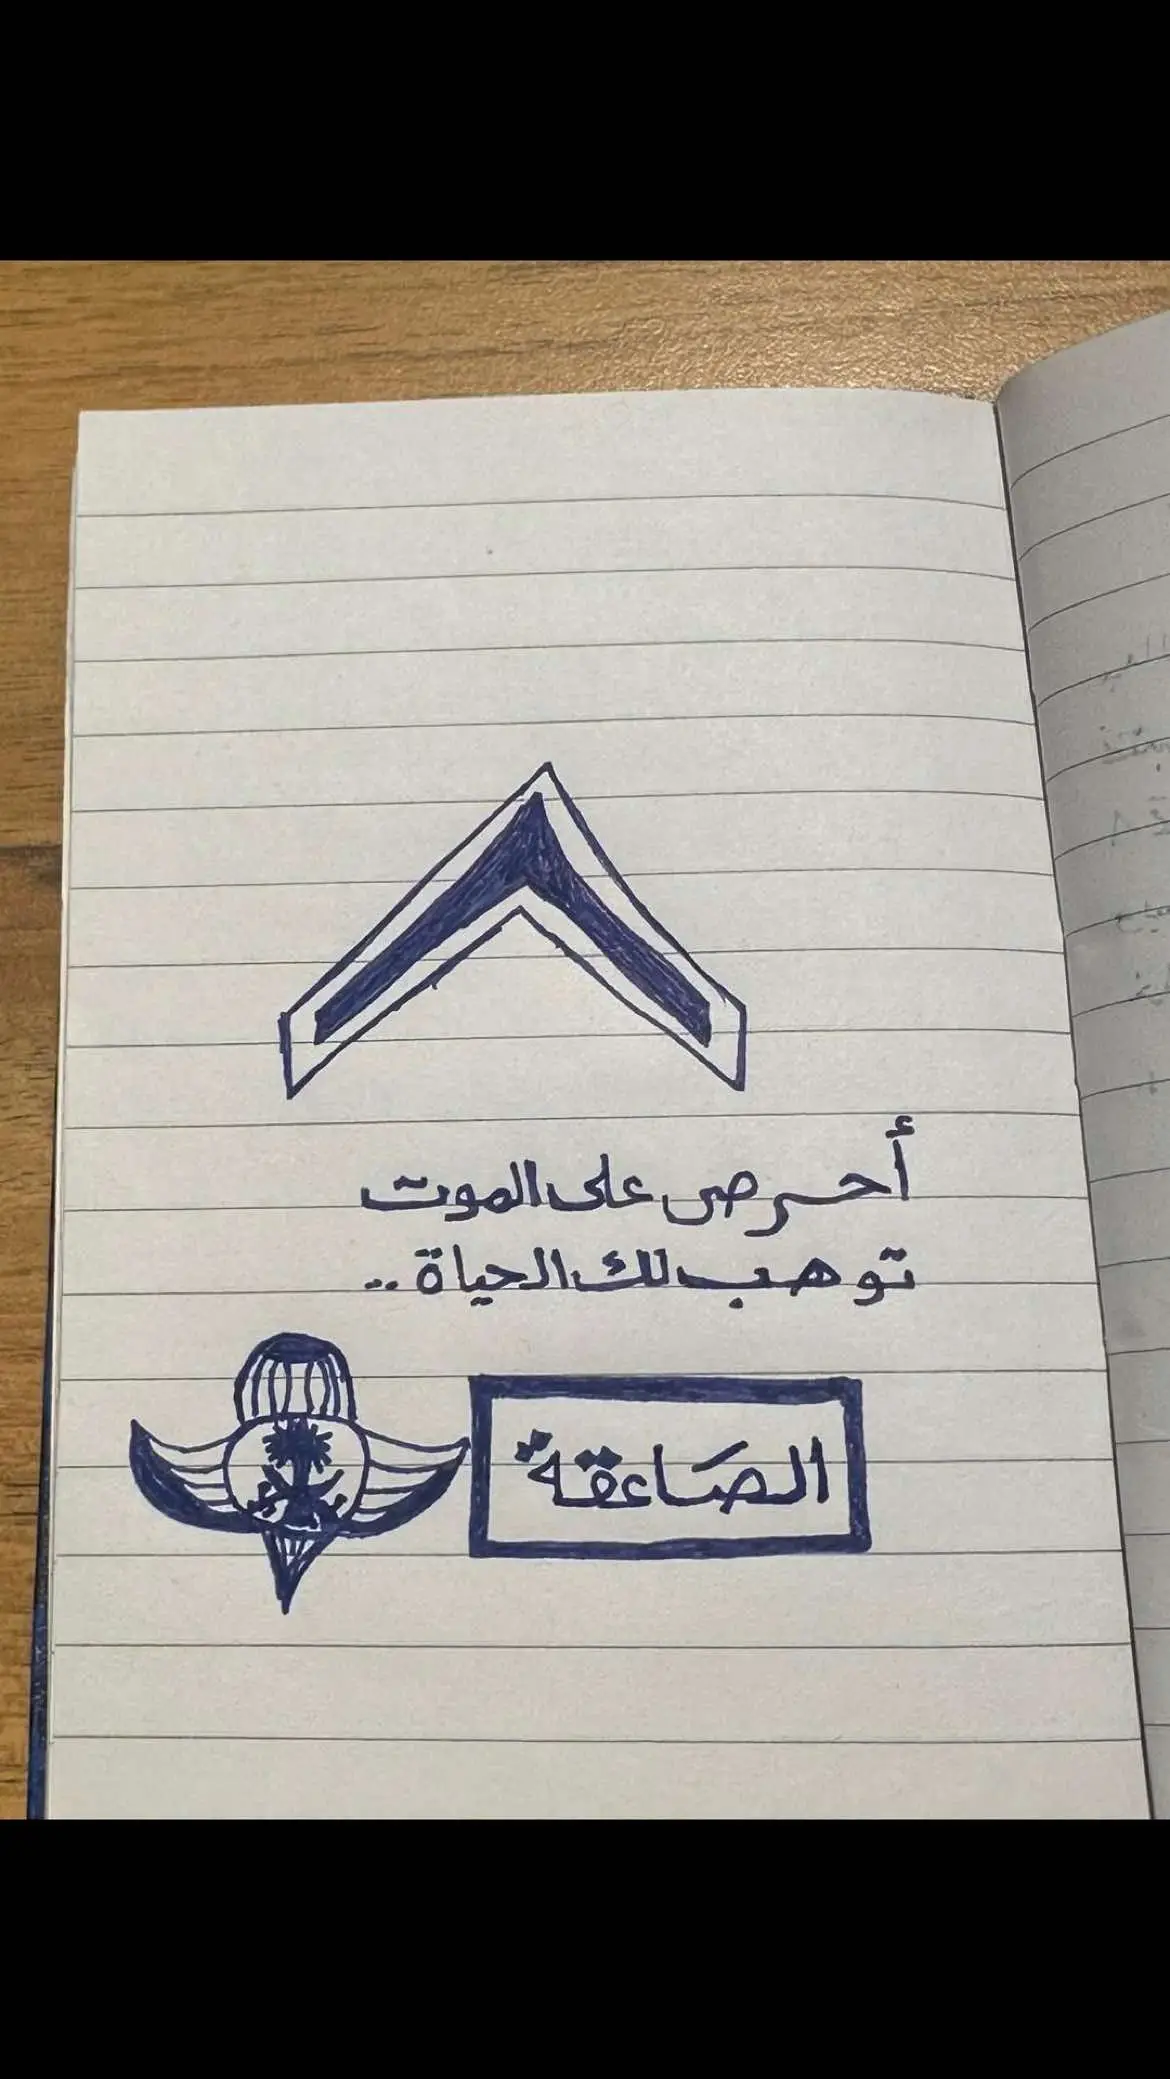 أحرص على الموت
توهب لك الحياة..
الصَاعقة